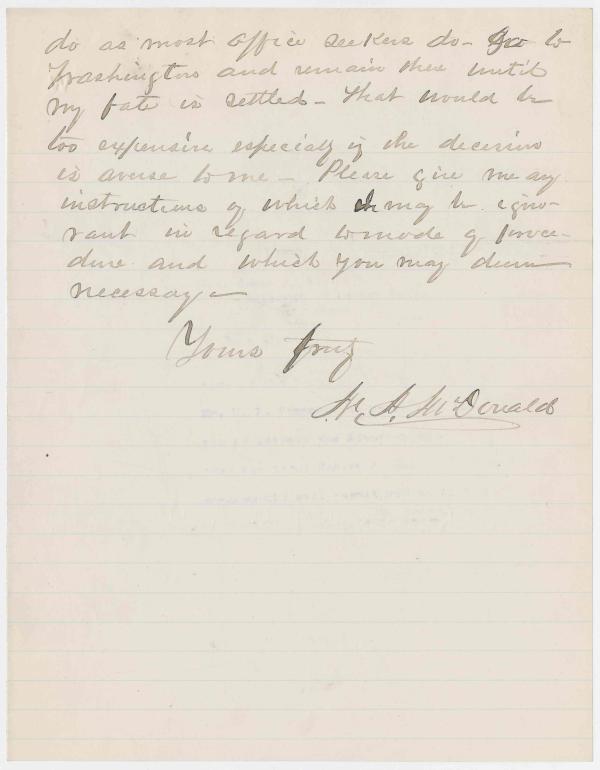 do as most office seekers do - Go to
Washington and remain there until
my fate is settled - That would be
too expensive especially if the decision
is averse to me - Please give me any
instructions of which I may be igno-
rant in regard to mode of proce-
dure and which you may deem
necessary -
Yours truly
A. McDonald